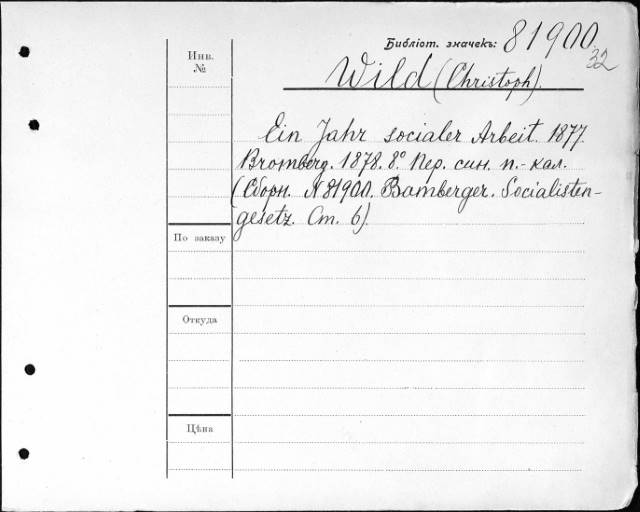 Библіот. значекъ: 81900
32
Инв. №
Wild (Christoph).
Ein Jahr socialer Arbeit. 1877.
Bromberg. 1878. 8º. Пер. син. п.-кал.
(Сборн. № 81900. Bamberger. Socialisten-
gesetz. Ст. 6).
По заказу
Откуда
Цѣна